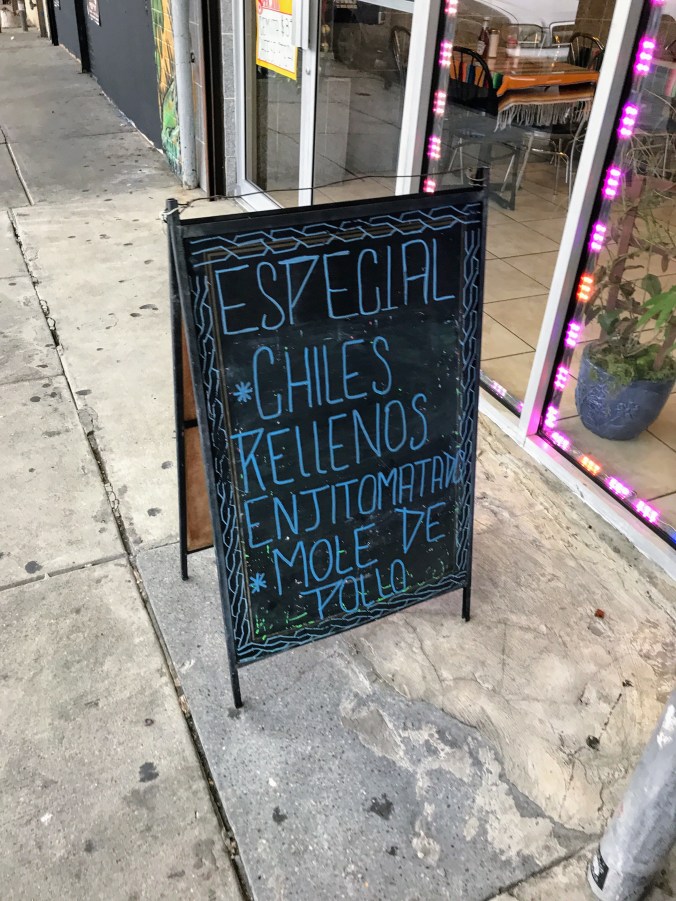 ESPECIAL
*CHILES
RELLENOS
ENJITOMATADO
*MOLE DE
POLLO